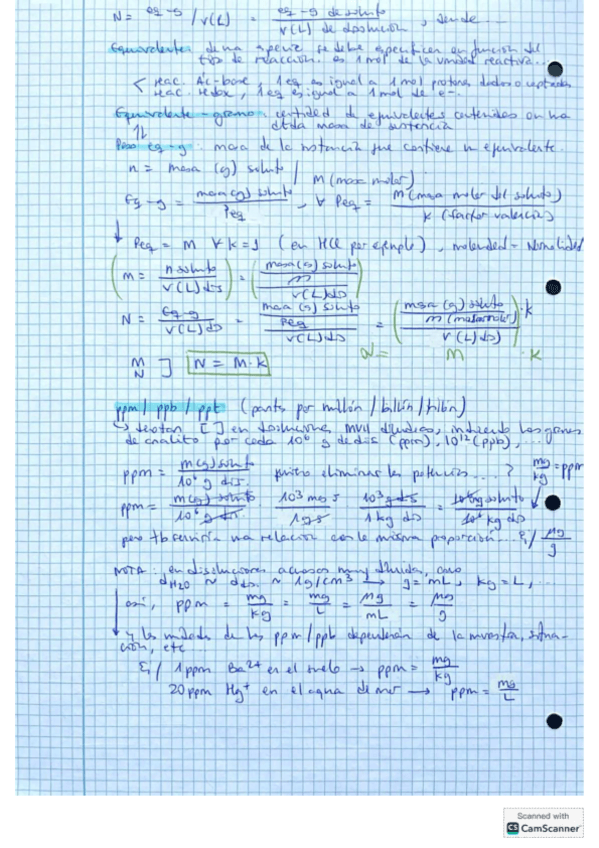 N = eq-g / V(L) = eq-g de soluto / V(L) de disolución , donde...
Equivalente: de una especie se debe especificar en función del
tipo de reacción. es 1 mol de la unidad reactiva...
< reac. Ac-base, 1 eq es igual a 1 mol protones dados o captados
reac. redox, 1 eq es igual a 1 mol de e-.
Equivalente-gramo: cantidad de equivalentes contenidos en una
dada masa de sustancia
⇅
Peso eq-g: masa de la sustancia que contiene un equivalente.
n = masa (g) soluto / M (masa molar)
Eq-g = masa (g) soluto / Peq , ∀ Peq = M (masa molar del soluto) / K (factor valencia)
↓ Peq = M ∀ K=1 (en HCl por ejemplo), molaridad = Normalidad
(M = n soluto / V(L) ds) = (masa (g) soluto / M / V(L) ds)
N = Eq-g / V(L) ds = masa (g) soluto / Peq / V(L) ds = (masa (g) soluto / M (masa molar) / V(L) ds) · K
N = M · K
M
N ] N = M · K
ppm / ppb / ppt (partes por millón / billón / trillón)
↳ denotan [ ] en disoluciones muy diluidas, indicando los gramos
de analito por cada 10⁶ g de dis (ppm), 10¹² (ppb), ...
ppm = m(g) soluto / 10⁶ g dis. puedo eliminar las potencias...? mg/kg = ppm
ppm = m(g) soluto / 10⁶ g ds · 10³ mg s / 1 g s · 10³ g ds / 1 kg ds = 10⁶ mg soluto / 10⁶ kg ds
pero tb serviría una relación con la misma proporción... Ej/ μg/g
NOTA: en disoluciones acuosas muy diluidas, como
dH2O ~ dds. ~ 1g/cm³ → g = mL, kg = L, ...
así, ppm = mg/kg = mg/L = μg/mL = μg/g
↓ y las unidades de las ppm/ppb dependerán de la muestra, situa-
ción, etc
Ej/ 1 ppm Ba²⁺ en el suelo → ppm = mg/kg
20 ppm Hg⁺ en el agua de mar → ppm = mg/L
Scanned with
CS CamScanner